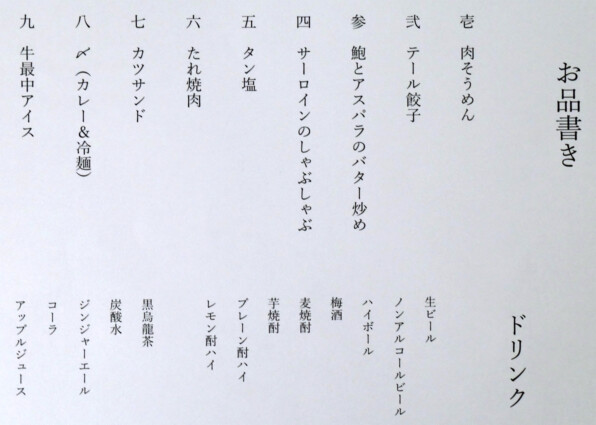 お品書き
壱 肉そうめん
弐 テール餃子
参 鮑とアスパラのバター炒め
四 サーロインのしゃぶしゃぶ
五 タン塩
六 たれ焼肉
七 カツサンド
八 〆（カレー＆冷麺）
九 牛最中アイス
ドリンク
生ビール
ノンアルコールビール
ハイボール
梅酒
麦焼酎
芋焼酎
プレーン酎ハイ
レモン酎ハイ
黒烏龍茶
炭酸水
ジンジャーエール
コーラ
アップルジュース